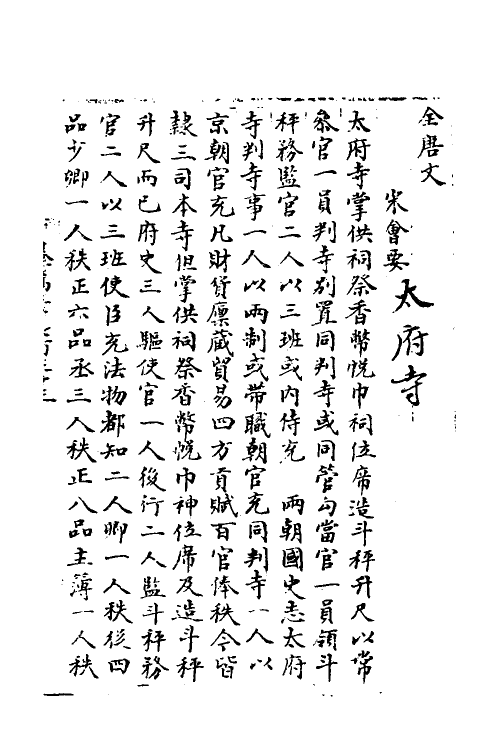 全唐文
宋會要
太府寺
太府寺掌供祠祭香幣帨巾祠位席造斗秤升尺以常
叅官一員判寺別置同判寺或同管勾當官一員領斗
秤務監官二人以三班或内侍充 兩朝國史志太府
寺判寺事一人以兩制或帶職朝官充同判寺一人以
京朝官充凡財貨廪藏貿易四方貢賦百官俸秩今皆
隸三司本寺但掌供祠祭香幣帨巾神位席及造斗秤
升尺而已府史三人驅使官一人後行二人監斗秤務
官二人以三班使臣充法物都知二人卿一人秩從四
品少卿一人秩正六品丞三人秩正八品主簿一人秩